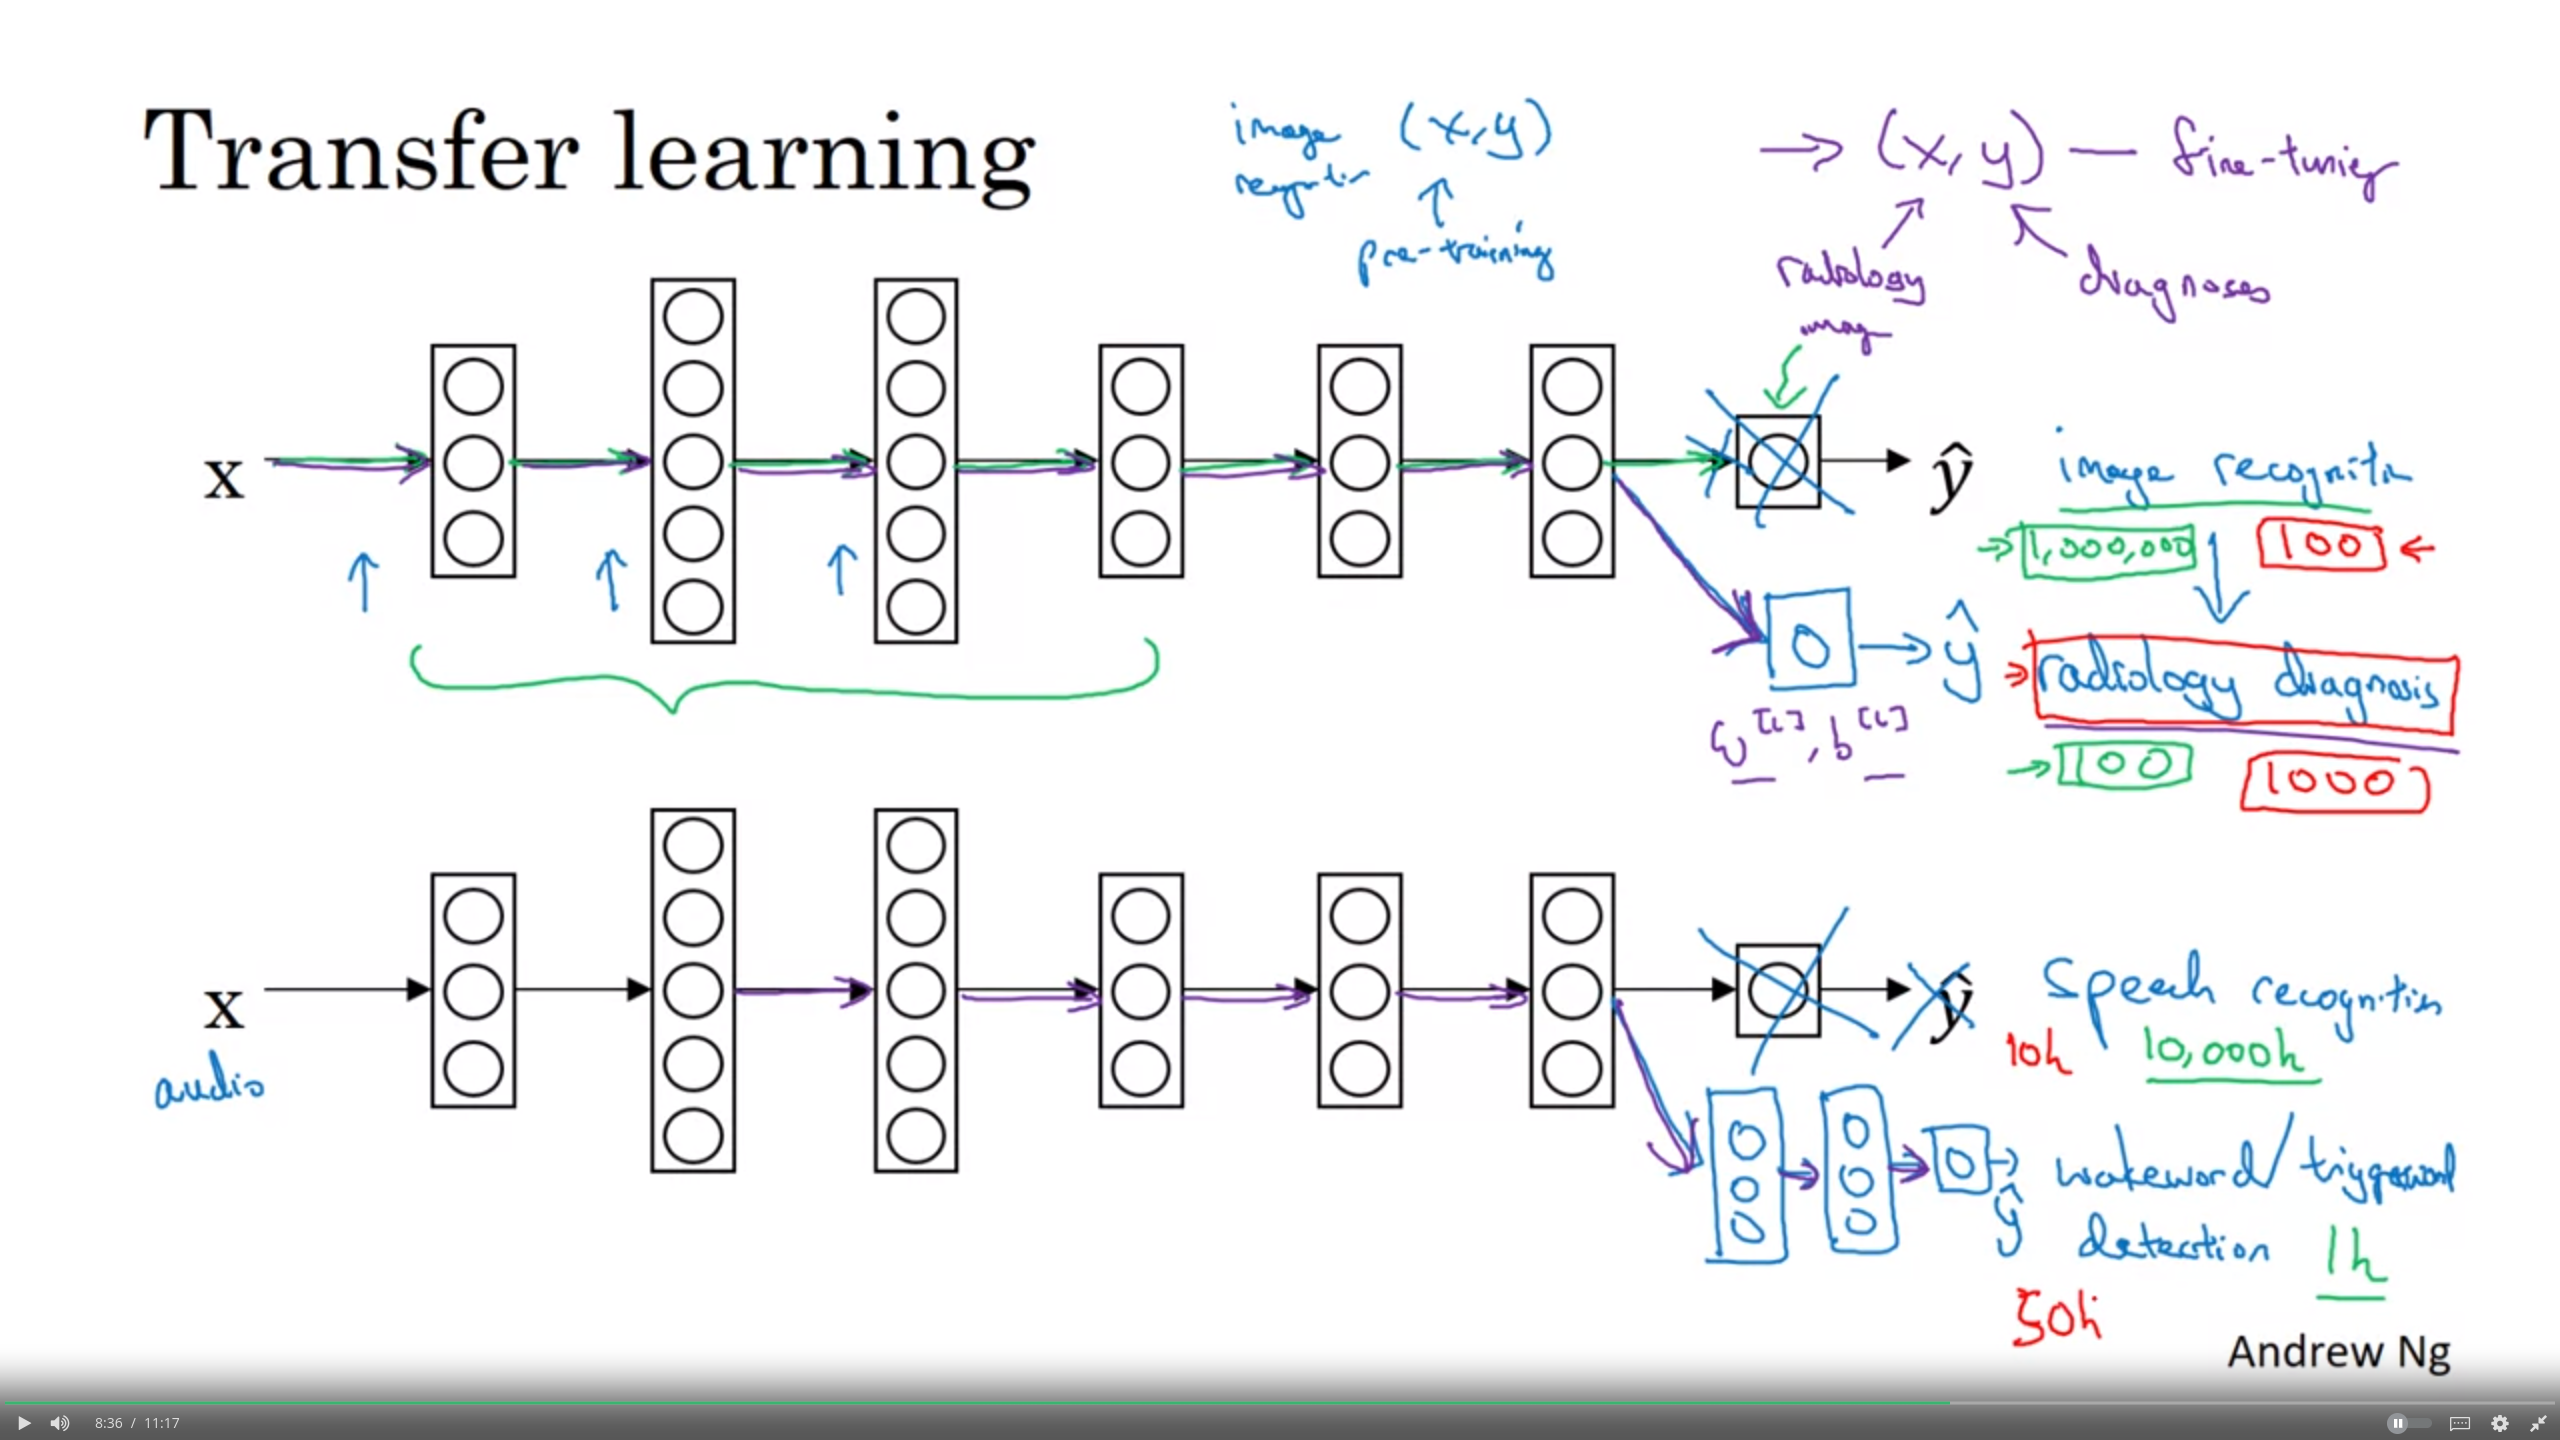 Transfer learning
image (x,y)
recognition
pre-training
→ (x, y) — fine-tuning
radiology
image
diagnoses
x
ŷ
image recognition
→ 1,000,000 100 ←
ŷ
→ radiology diagnosis
w[L], b[L]
→ 100 1000
x
ŷ
audio
Speech recognition
10h 10,000h
ŷ
wakeword/triggerword
detection 1h
50h
Andrew Ng
8:36 / 11:17